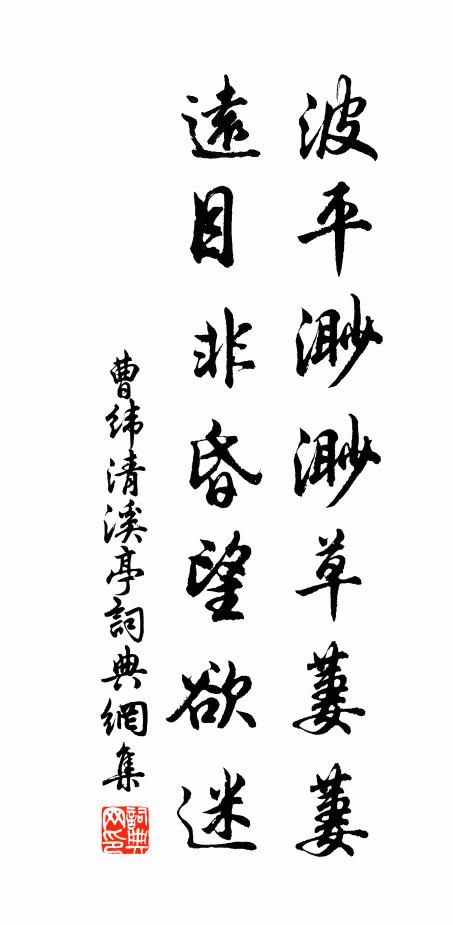 波平渺渺草萋萋
遠目非昏望欲迷
曹緯清溪亭詞典網集
詞典网印